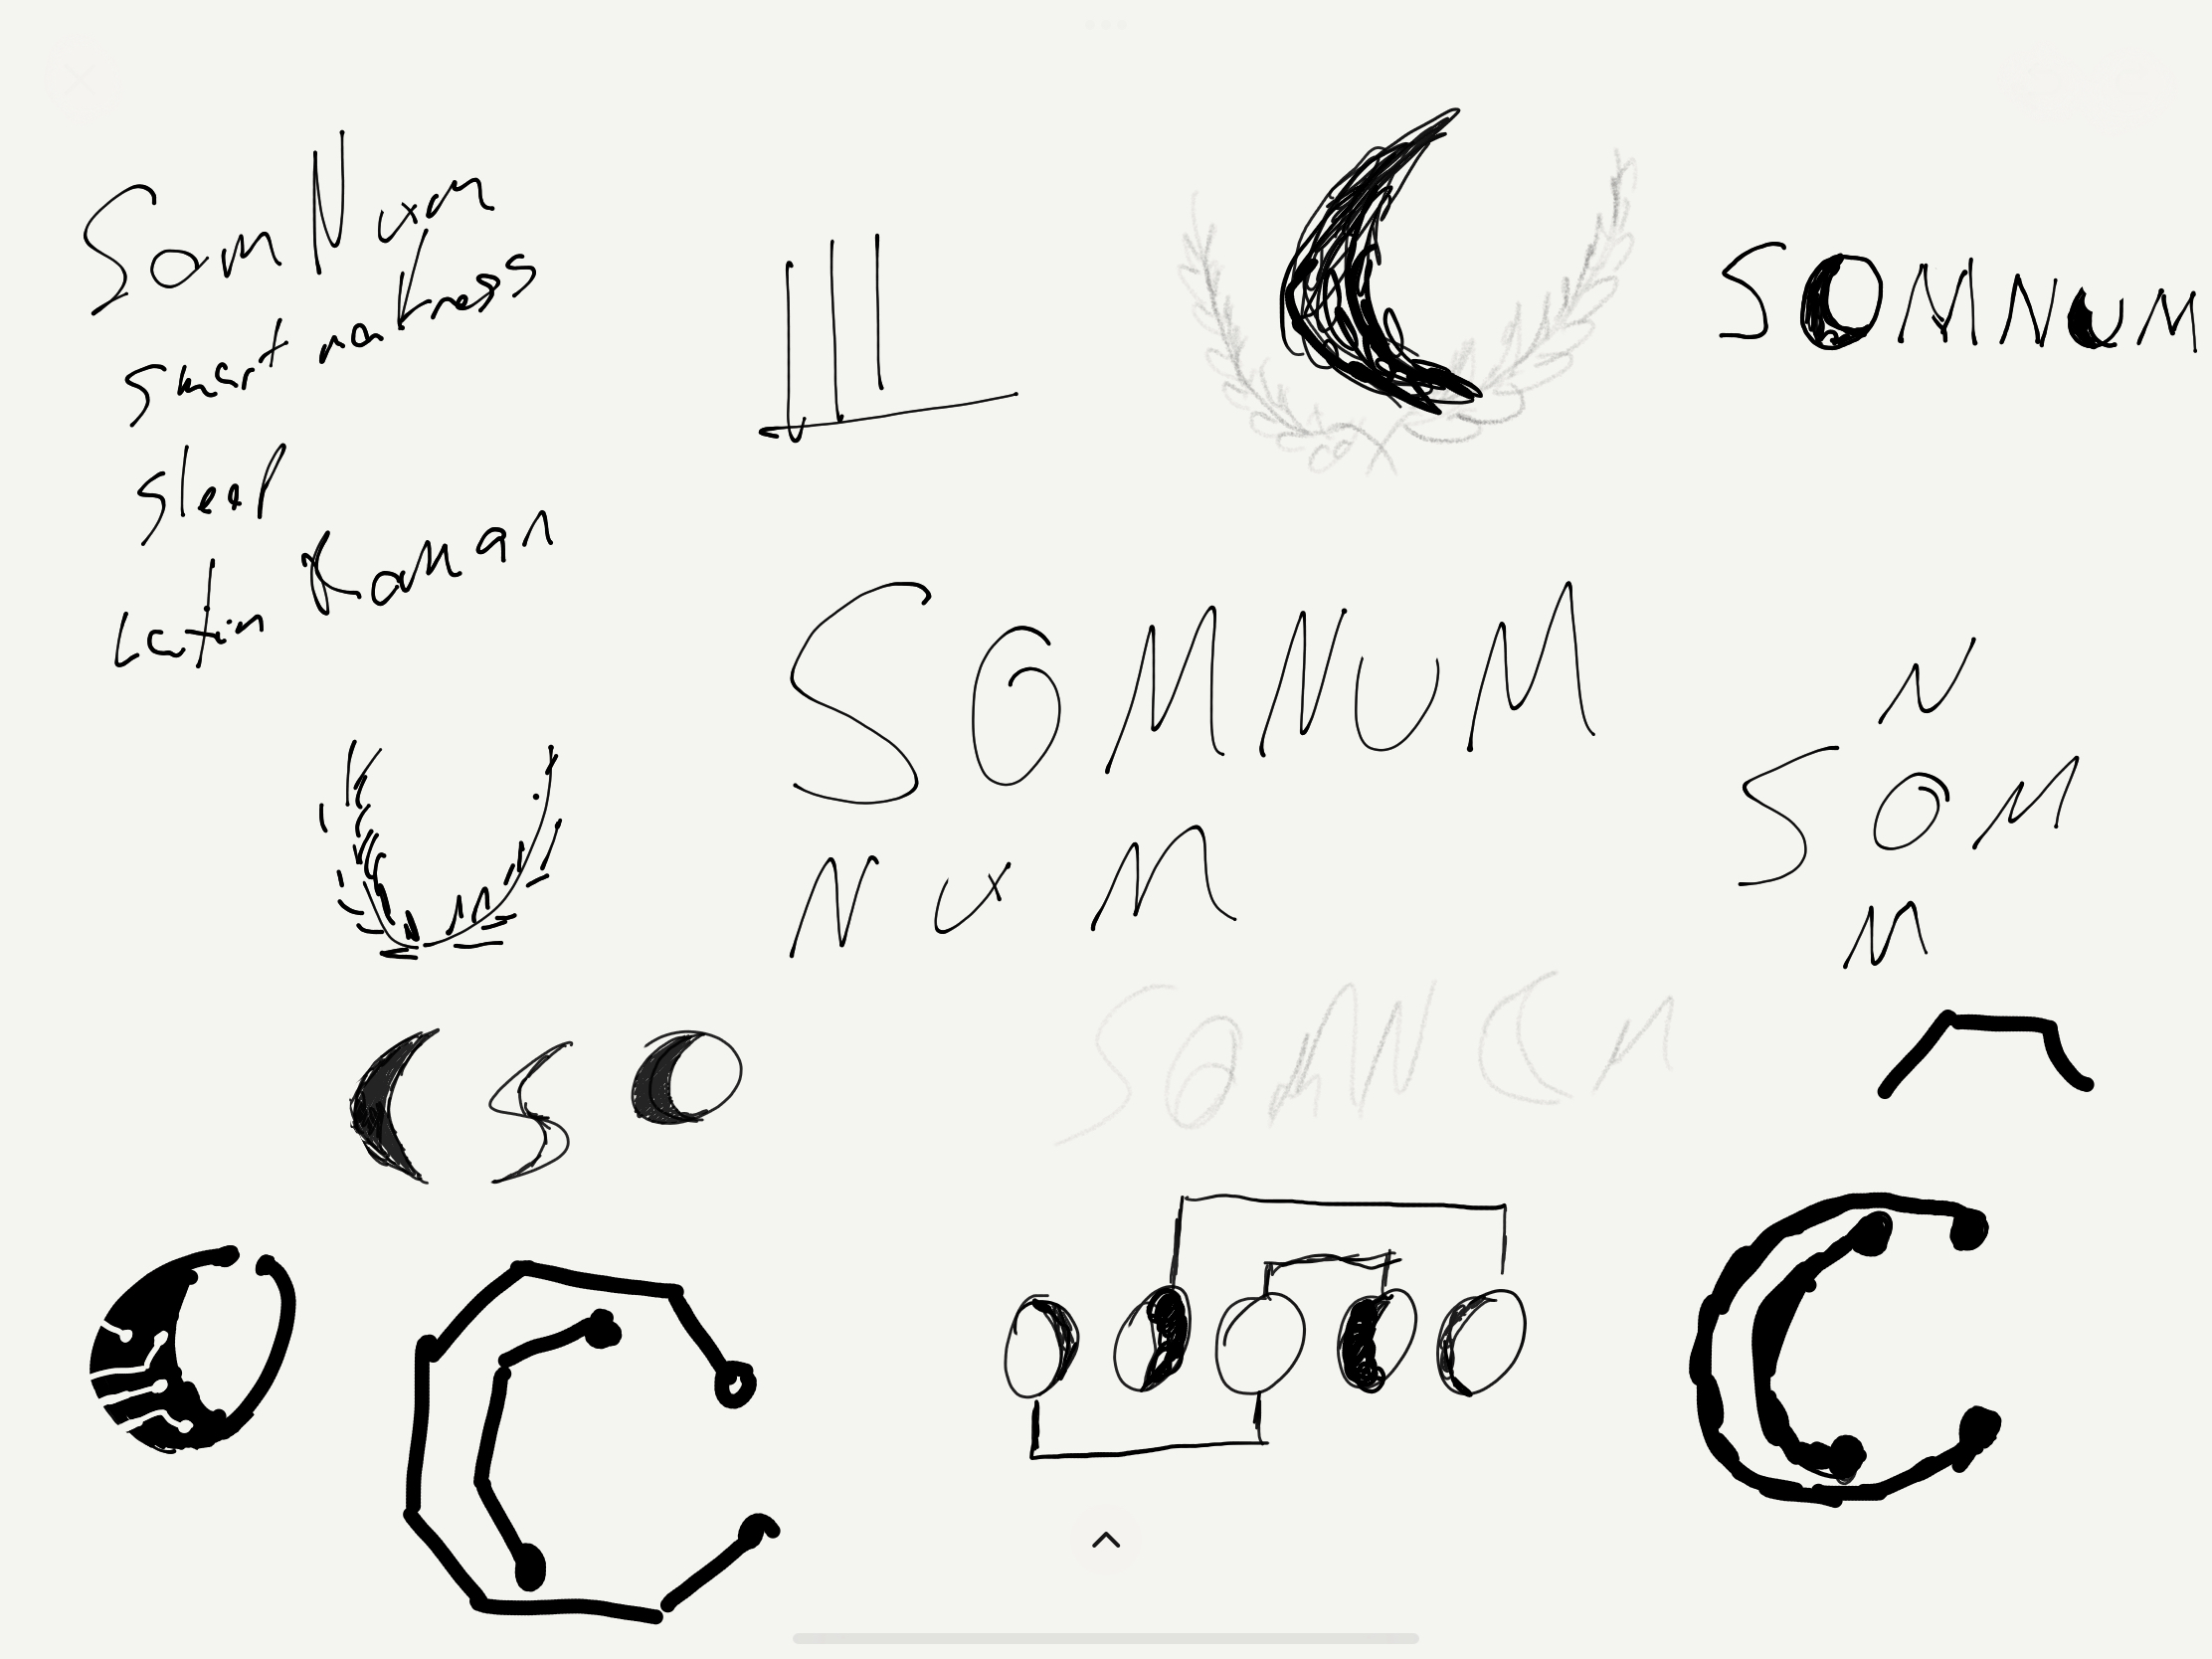 SomNum
smart matress
sleep
Latin Roman
SOMNUM
SOMNUM
NUM
N
SOM
M
S